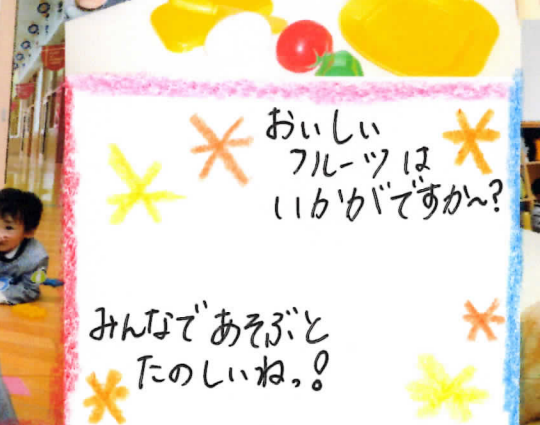 おいしい
フルーツは
いかがですか〜?
みんなであそぶと
たのしいねっ!